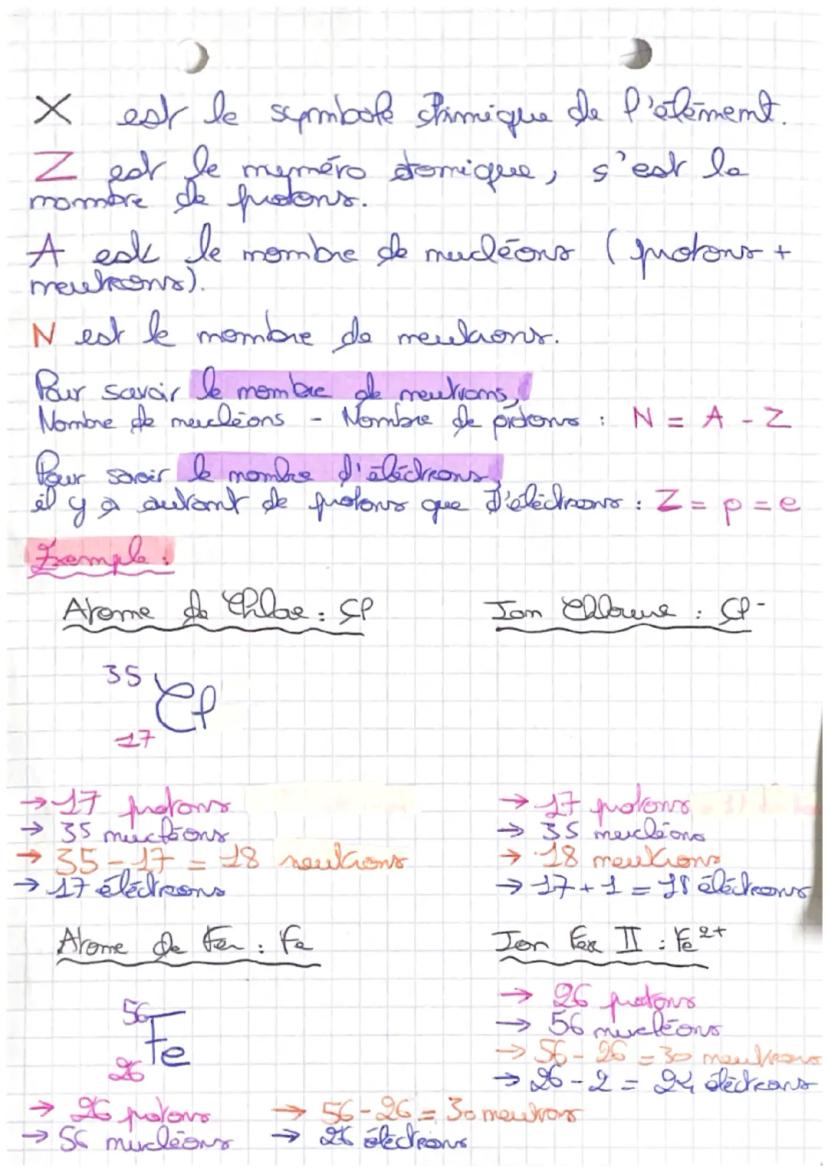 X est le symbole chimique de l'élément.
Z est le numéro atomique, s'est le
nombre de protons.
A est le nombre de nucléons ( protons +
neutrons).
N est le nombre de neutrons.
Pour savoir le nombre de neutrons,
Nombre de nucléons - Nombre de protons : N = A - Z
Pour savoir le nombre d'éléctrons,
il y a autant de protons que d'éléctrons : Z = p = e
Exemple :
Atome de Chlore : Cl
Ion Chlorure : Cl⁻
35
Cl
17
→ 17 protons
→ 35 nucléons
→ 35 - 17 = 18 neutrons
→ 17 éléctrons
→ 17 protons
→ 35 nucléons
→ 18 neutrons
→ 17 + 1 = 18 éléctrons
Atome de Fer : Fe
Ion Fer II : Fe²⁺
56
Fe
26
→ 26 protons
→ 56 nucléons
→ 56 - 26 = 30 neutrons
→ 26 - 2 = 24 éléctrons
→ 26 protons
→ 56 nucléons
→ 56 - 26 = 30 neutrons
→ 26 éléctrons